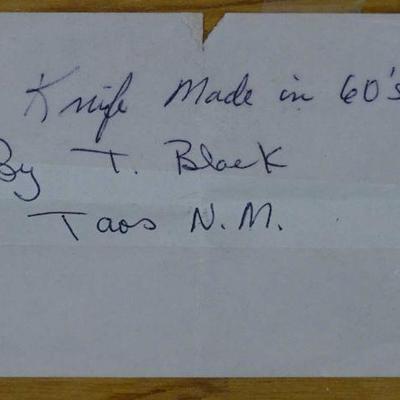 Knife Made in 60's
By T. Black
Taos N.M.